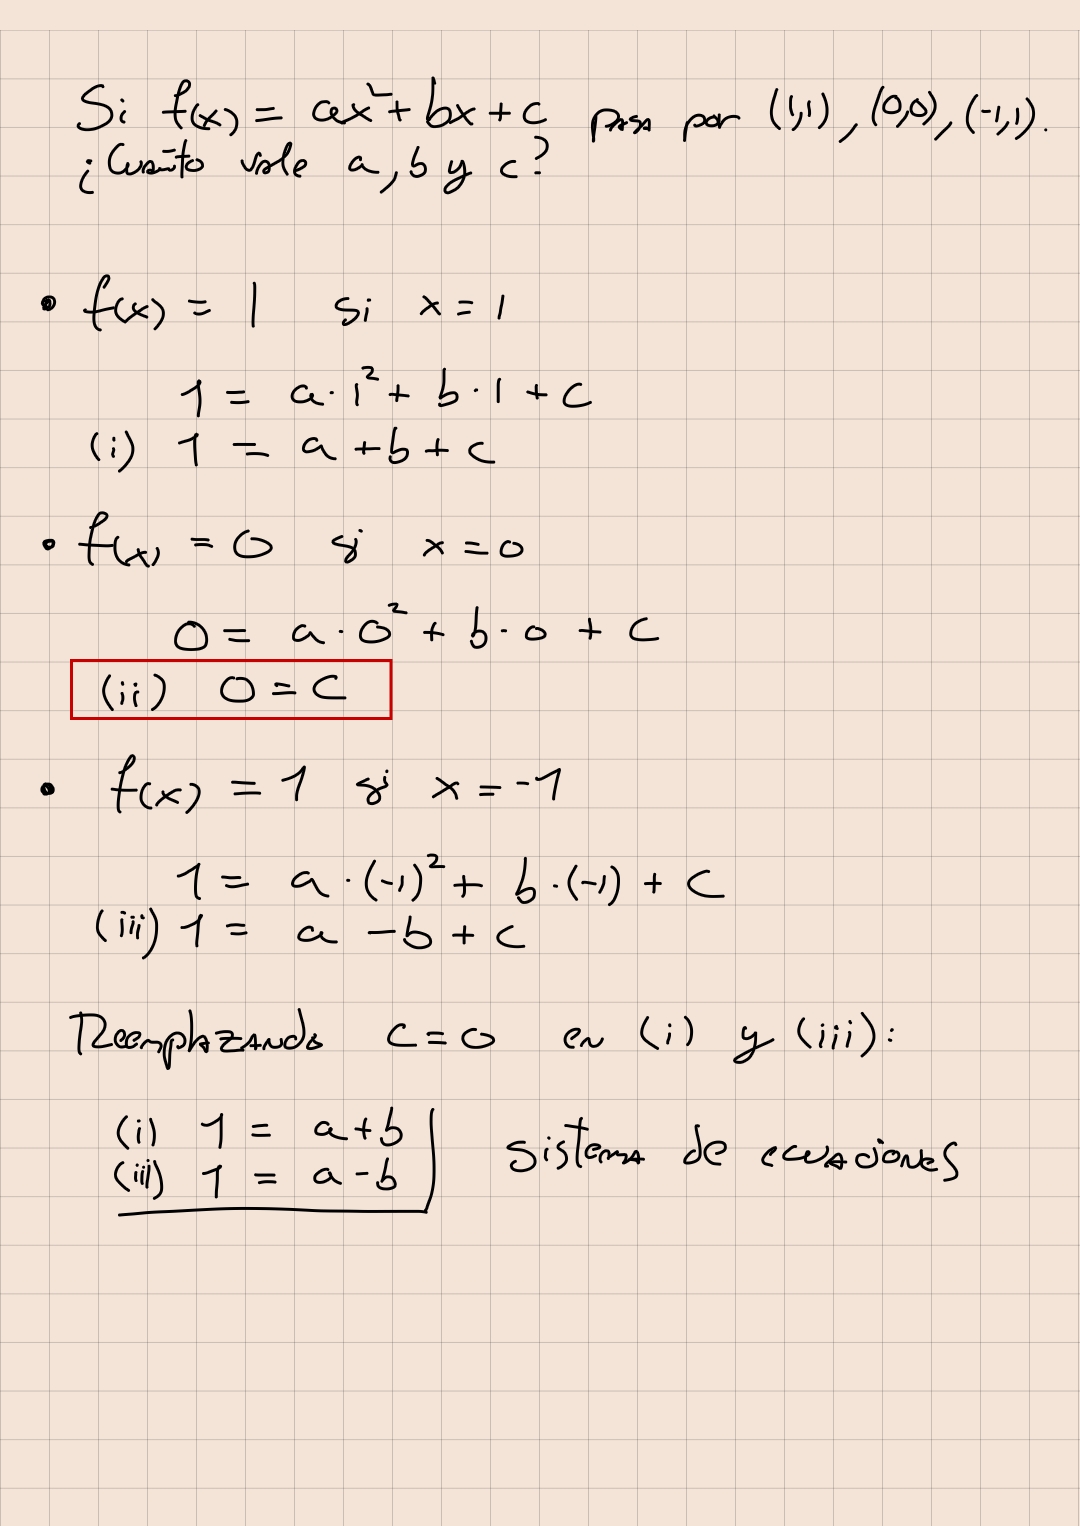 Si f(x) = ax² + bx + c pasa por (1,1), (0,0), (-1,1).
¿Cuánto vale a, b y c?
• f(x) = 1 si x = 1
1 = a · 1² + b · 1 + c
(i) 1 = a + b + c
• f(x) = 0 si x = 0
0 = a · 0² + b · 0 + c
(ii) 0 = c
• f(x) = 1 si x = -1
1 = a · (-1)² + b · (-1) + c
(iii) 1 = a - b + c
Reemplazando c = 0 en (i) y (iii):
(i) 1 = a + b
(iii) 1 = a - b
sistema de ecuaciones